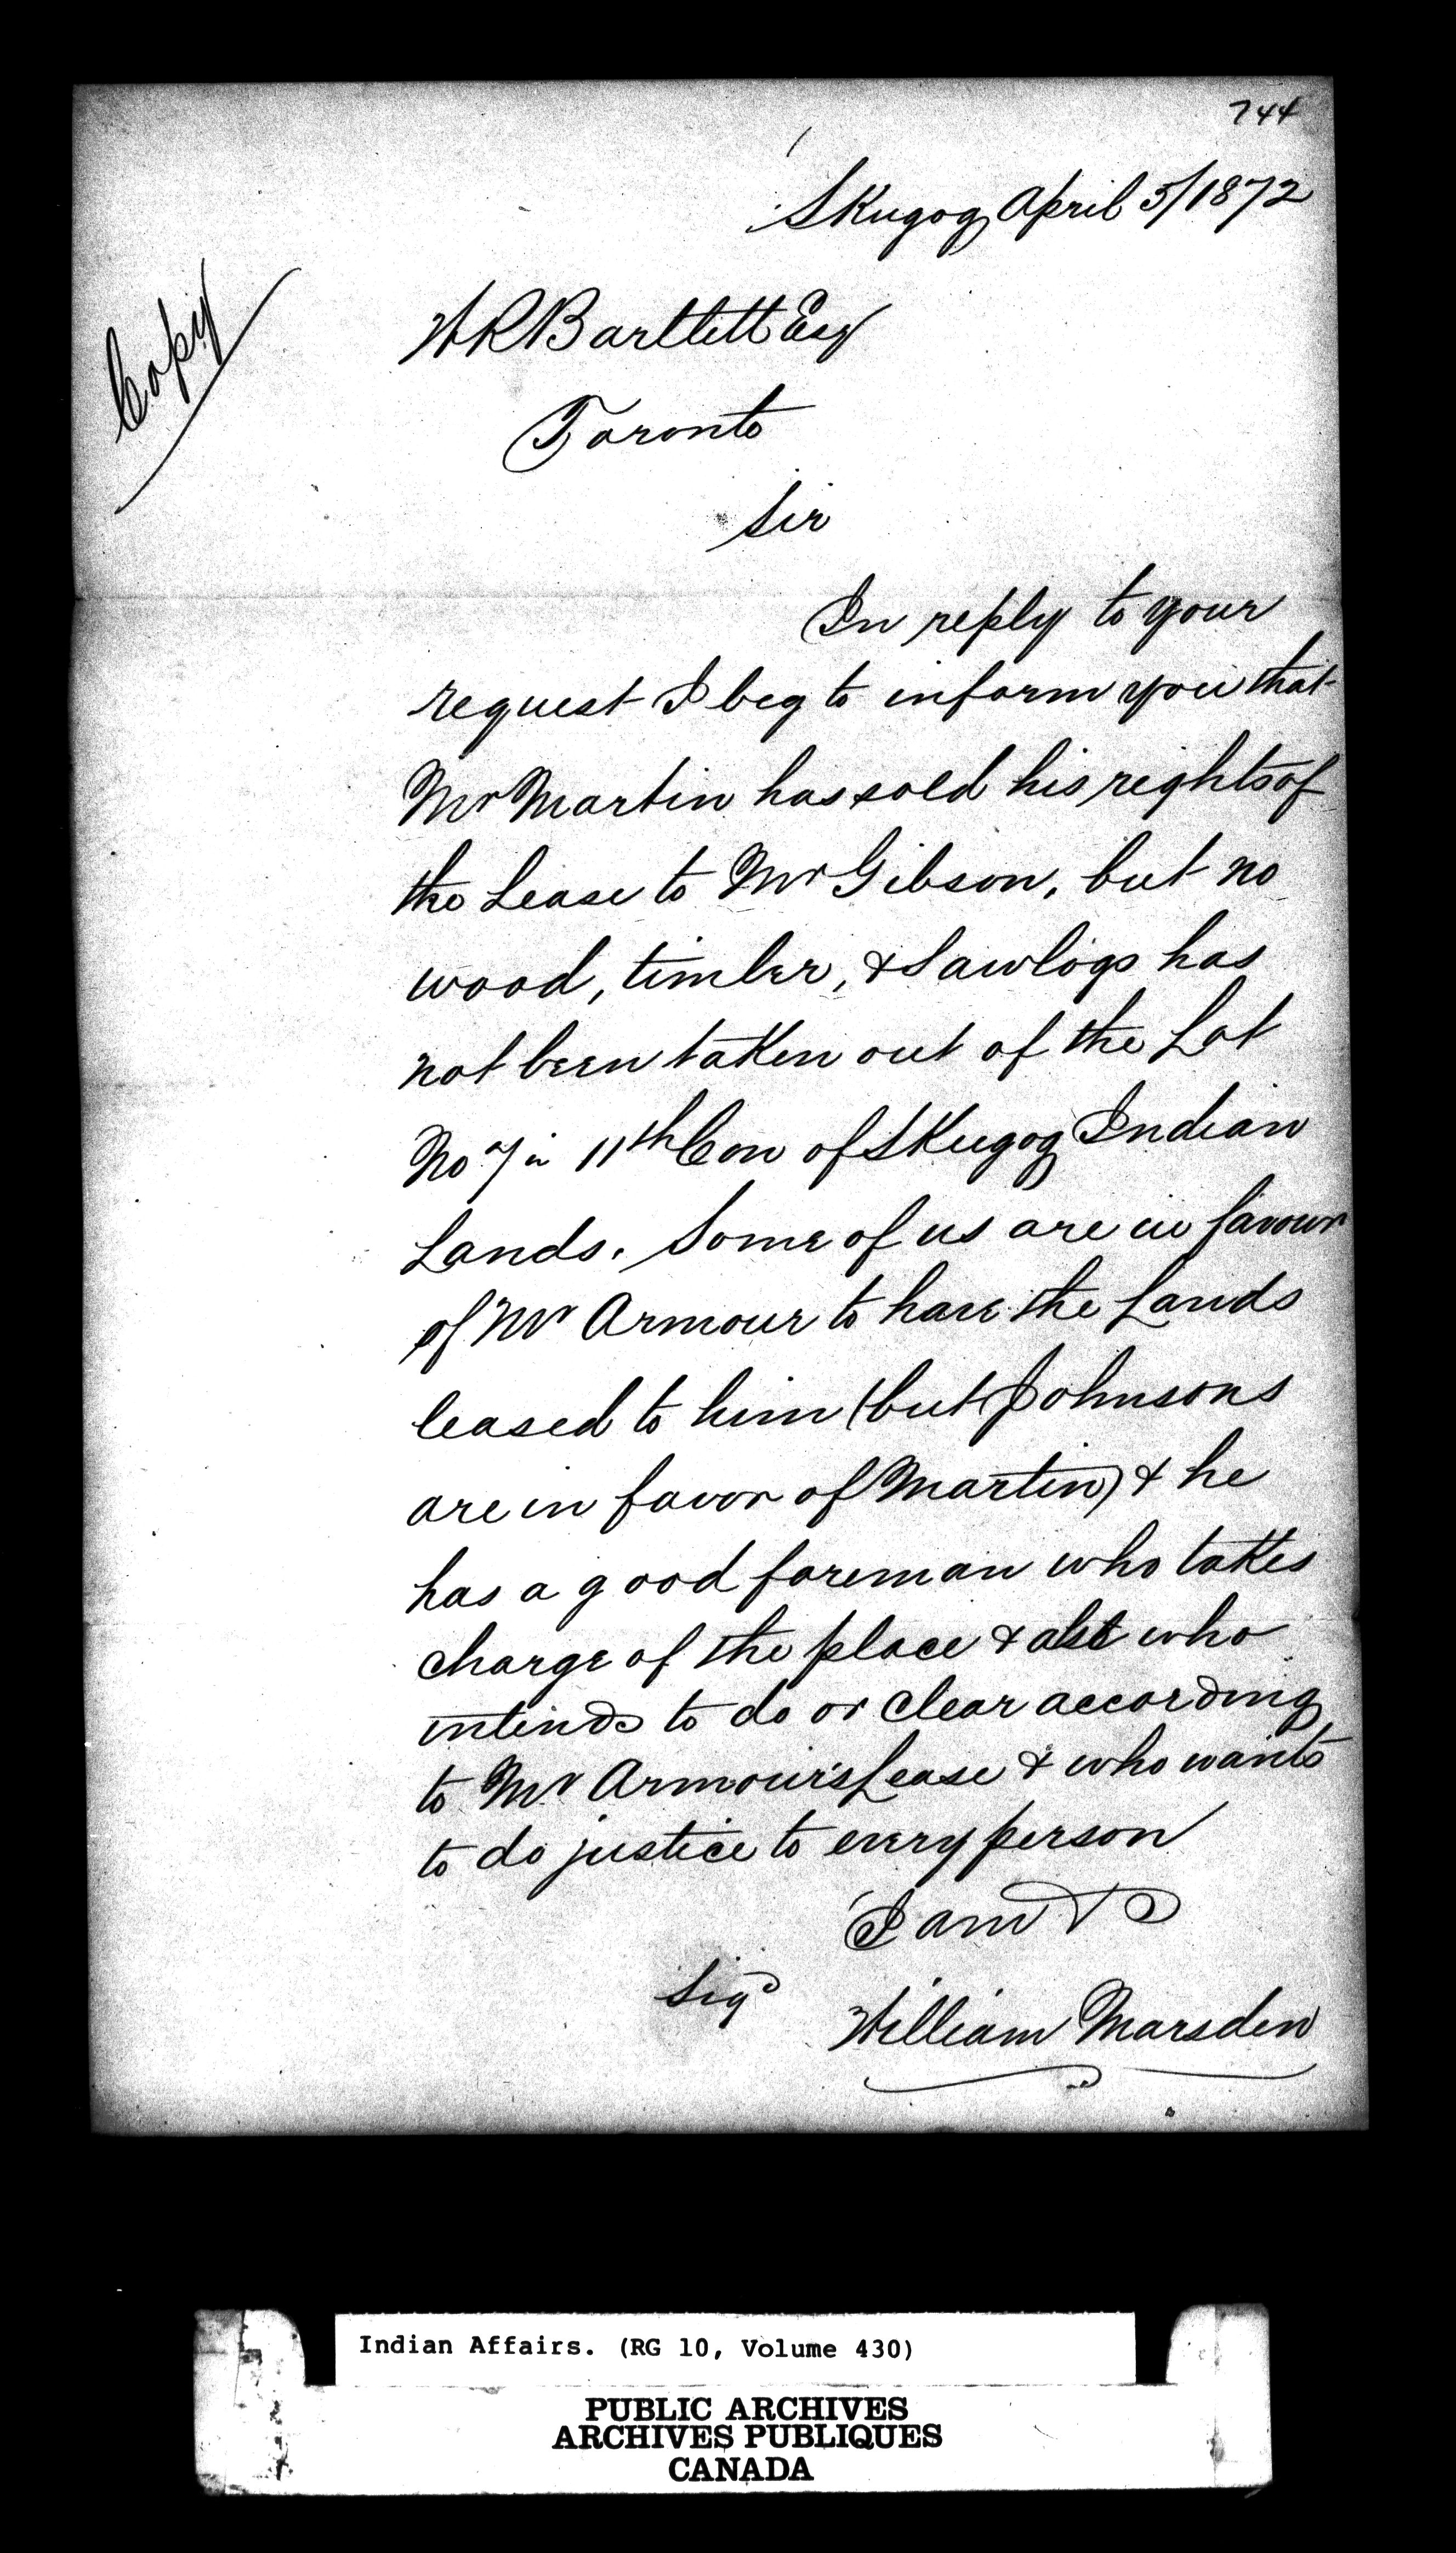 744
Skugog April 5/1872
Copy
W R Bartlett Esq
Toronto
Sir
In reply to your
request I beg to inform you that
Mr Martin has sold his rights of
the Lease to Mr Gibson, but no
wood, timber, & Sawlogs has
not been taken out of the Lot
No 7 in 11th Con of Skugog Indian
Lands. Some of us are in favour
of Mr Armour to have the Lands
leased to him (but Johnsons
are in favor of Martin) & he
has a good foreman who takes
charge of the place & who
intends to do or clear according
to Mr Armour's Lease & who wants
to do justice to every person
I am
Sigd
William Marsden
Indian Affairs. (RG 10, Volume 430)
PUBLIC ARCHIVES
ARCHIVES PUBLIQUES
CANADA